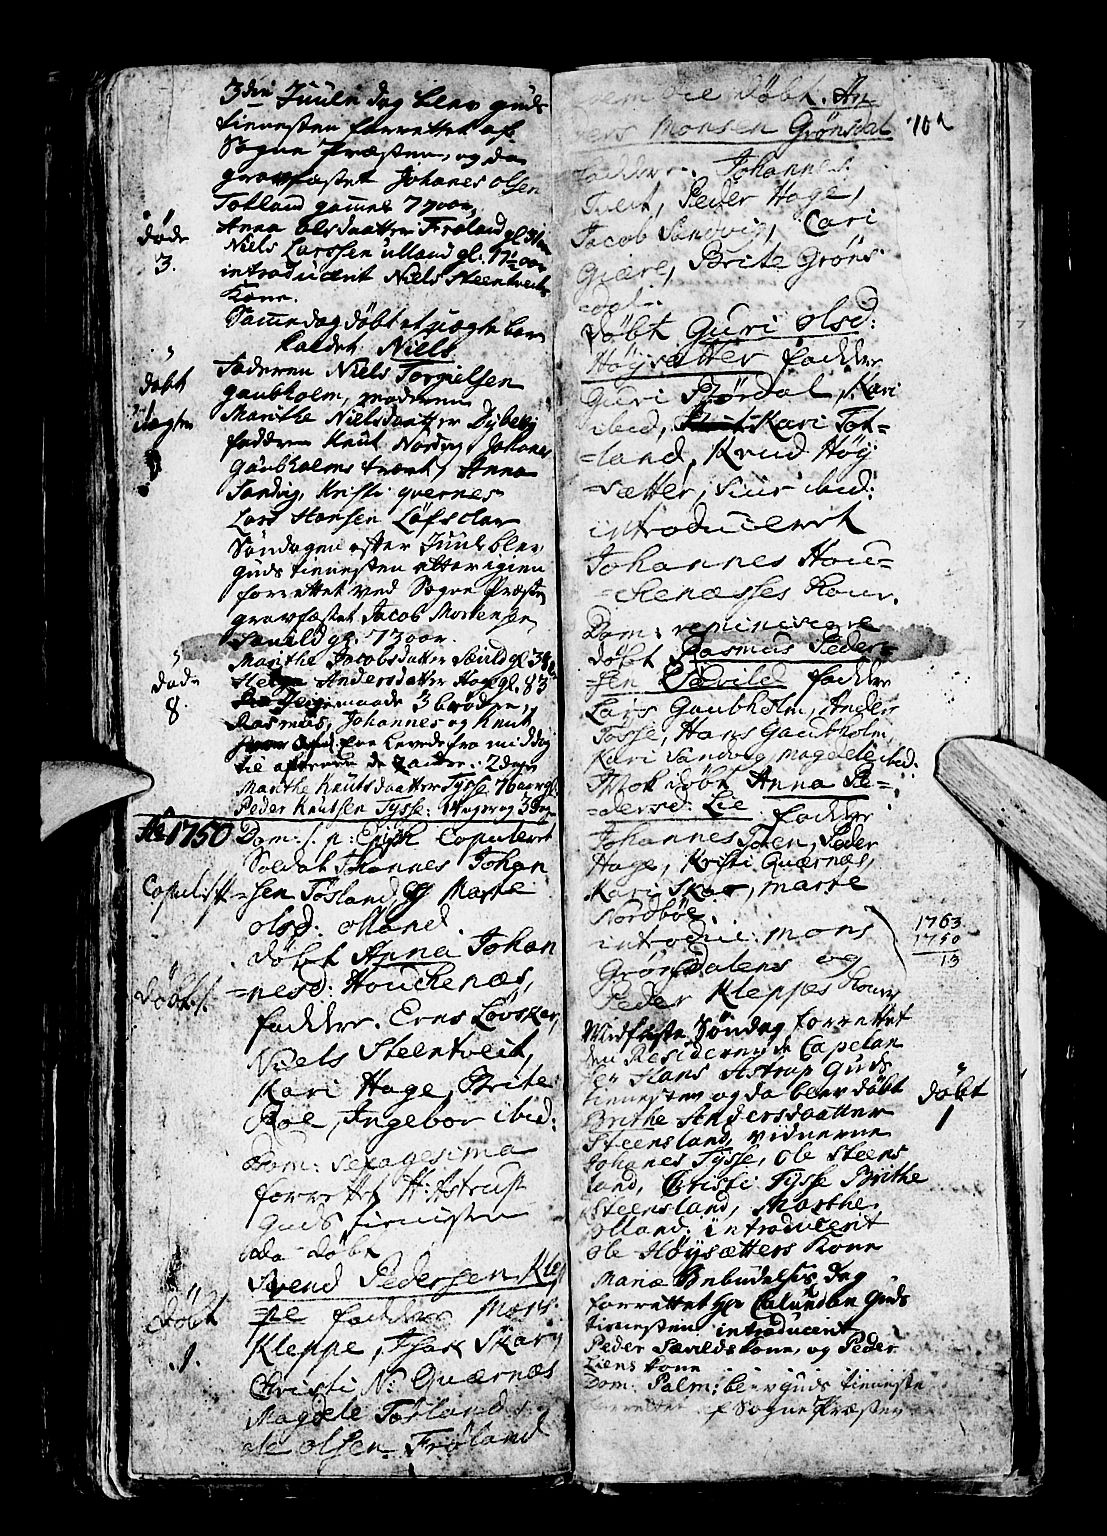 3die Juule dag blev guds
tienesten forrettet af
Sogne Præsten, og da
gravfæstet Johanes olsen
Totland gamel 77 aar,
døde
3.
Anna olsdaatter Frøland gl.
Niels Larssen ulland gl. 77½ aar
introducert Niels Steentveits
Kone.
Samme dag døbt et uægte barn
kaldet Niels
døbt
uægte
Faderen Niels Tornielsen
gaubholm, moderen
Marithe Nielsdaatter Dybevig
faddere Knut Nordvig, Johanes
Gaubholms træet, Anna
Sandvig, Kristi qvernes
Lars Hansen Løfsdaer
Søndagen efter Juul blev
guds tienesten atter igien
forrettet ved Sogne Præsten
gravfæstet Jacob Mortensen
Sævild gl. 73 aar.
døde
8.
Marithe Jacobsdatter Sævild gl.
Andersdatter Hage gl. 83
maade 3 brødre,
Rasmus, Johannes og Knut
levede fra middag
til aftenen de 2 andre 2 dage
Marthe Knutsdaatter Tysse 76 aar gl.
Peder Knutsen Tysse: uger og 3 dage
Ao 1750 Dom: f. p: Epiph Copuleret
Copulert
Soldat Johannes Johan
=sen Tøsland og Marte
olsd: Olland.
døbt Anna Johan
døbt 1.
=nesd: Houckenæs,
faddere. Erns Løvsker,
Niels Steentveit,
Kari Hage, Brite
Roe, Ingebor ibid:
Dom: Sexagesima
forrettet H: Astrup
Guds tienisten
da døbt
Svend Pedersen Klep
døbt
1.
=pe faddere Mons
Kleppe, Isak Skare
Christi N: Quærnæs
Magdele Tøsland,
ole olsen Frøland
102
døbt. An
=ders Monsen Grønsdal
Faddere. Johannes
Tveit, Peder Hage,
Jacob Sandvig, Cari
Giære, Brite Grøns
=dal.
døbt Guri olsd:
Høysætter fadder
Guri Børdal, Kari
ibid, Kari Tot=
=land, Knud Høy
=sætter, Siur ibid:
introduceret
Johannes Hou=
=kenæsses Konr.
Dom: reminiscere
døbt Rasmus Peder=
=sen Sævild faddere
Lars Gaubholm, Anders
Tosse, Hans Gaubholm,
Kari Sandvig magdele ibid.
Nok døbt Anna Pe=
=dersd: Lie faddere
Johannes Toten, Peder
Hage, Kristi Quærnæs,
Kari Skar, marte
Nordbøe.
introdu: Mons
Grønsdalens og
Peder Kleppes Koner
1763
1750
13
Midfaste Søndag forrettet
den Residerende Capelan
Hr Hans Astrup Guds
tienesten og da blev døbt
døbt
1
Brithe Andersdaatter
Steensland, vidnerne
Johanes Tysse, Ole Steens
land, Christi Tysse Brithe
Steensland, Marthe
olland. introducerit
Ole Høysætters Kone
Mariæ Bebudelses dag
forrettet Hr Calundan Guds
tienesten introducerit
Peder Sævilds kone, og Peder
Liens kone
Dom: Palm: blev guds tieneste
forrettet af Sogne Præsten